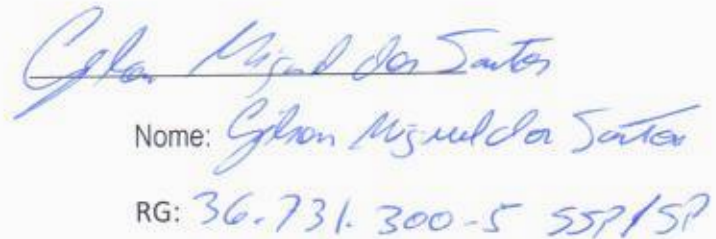 Gilson Miguel dos Santos
Nome: Gilson Miguel dos Santos
RG: 36.731.300-5 SSP/SP